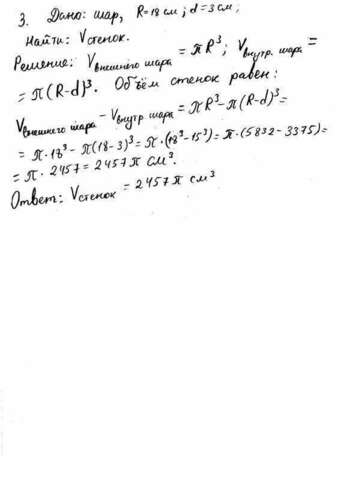 3. Дано: шар, R=18 см; d=3 см;
Найти: Vстенок.
Решение: Vвнешнего шара = πR³; Vвнутр. шара =
= π(R-d)³. Объём стенок равен:
Vвнешнего шара - Vвнутр шара = πR³-π(R-d)³=
= π·18³ - π(18-3)³ = π·(18³-15³) = π·(5832-3375)=
= π·2457 = 2457π см³.
Ответ: Vстенок = 2457π см³